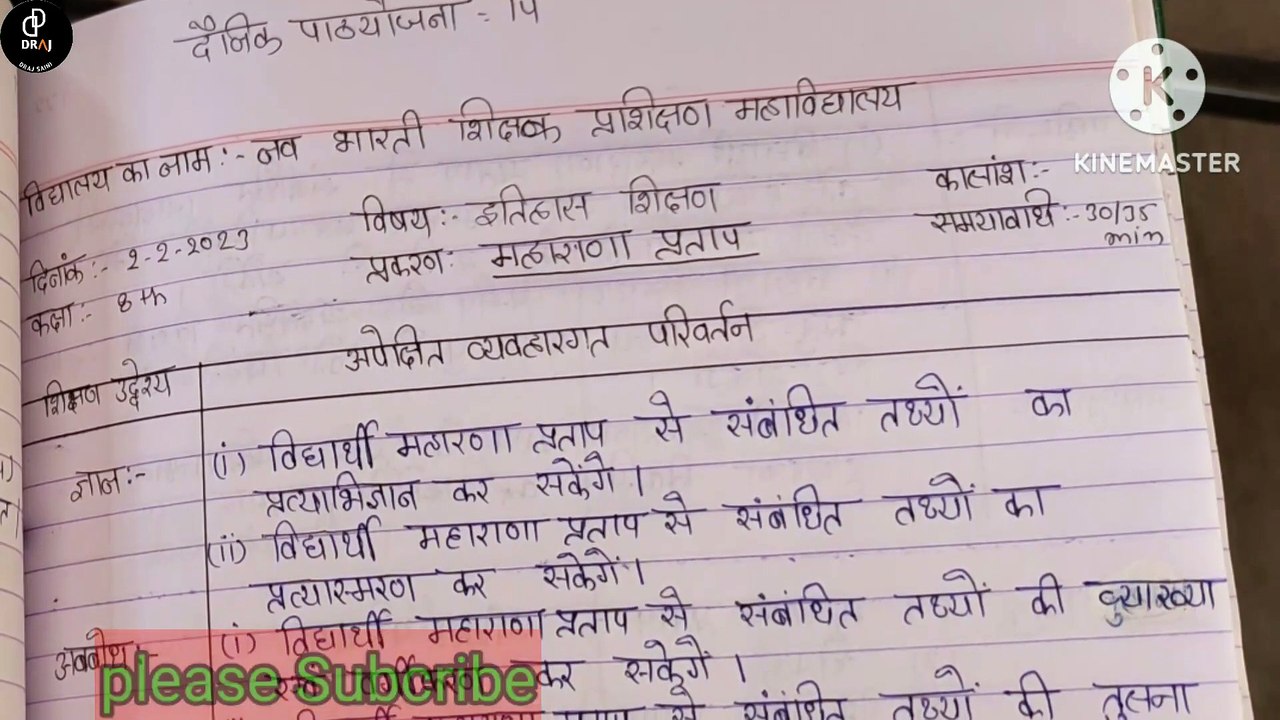 DRAJ
DRAJ SAINI
KINEMASTER
दैनिक पाठयोजना = 14
विद्यालय का नाम :- नव भारती शिक्षक प्रशिक्षण महाविद्यालय
दिनांक :- 2-2-2023 विषय :- इतिहास शिक्षण कालांश :-
कक्षा :- 8th प्रकरण : महाराणा प्रताप समयावधि :- 30/35 min
शिक्षण उद्देश्य अपेक्षित व्यवहारगत परिवर्तन
ज्ञान :- (i) विद्यार्थी महारणा प्रताप से संबंधित तथ्यों का
प्रत्याभिज्ञान कर सकेंगे ।
(ii) विद्यार्थी महाराणा प्रताप से संबंधित तथ्यों का
प्रत्यास्मरण कर सकेगें ।
अवबोध :- (i) विद्यार्थी महाराणा प्रताप से संबंधित तथ्यों की व्याख्या
कर सकेगें ।
से संबंधित तथ्यों की तुलना
please Subcribe